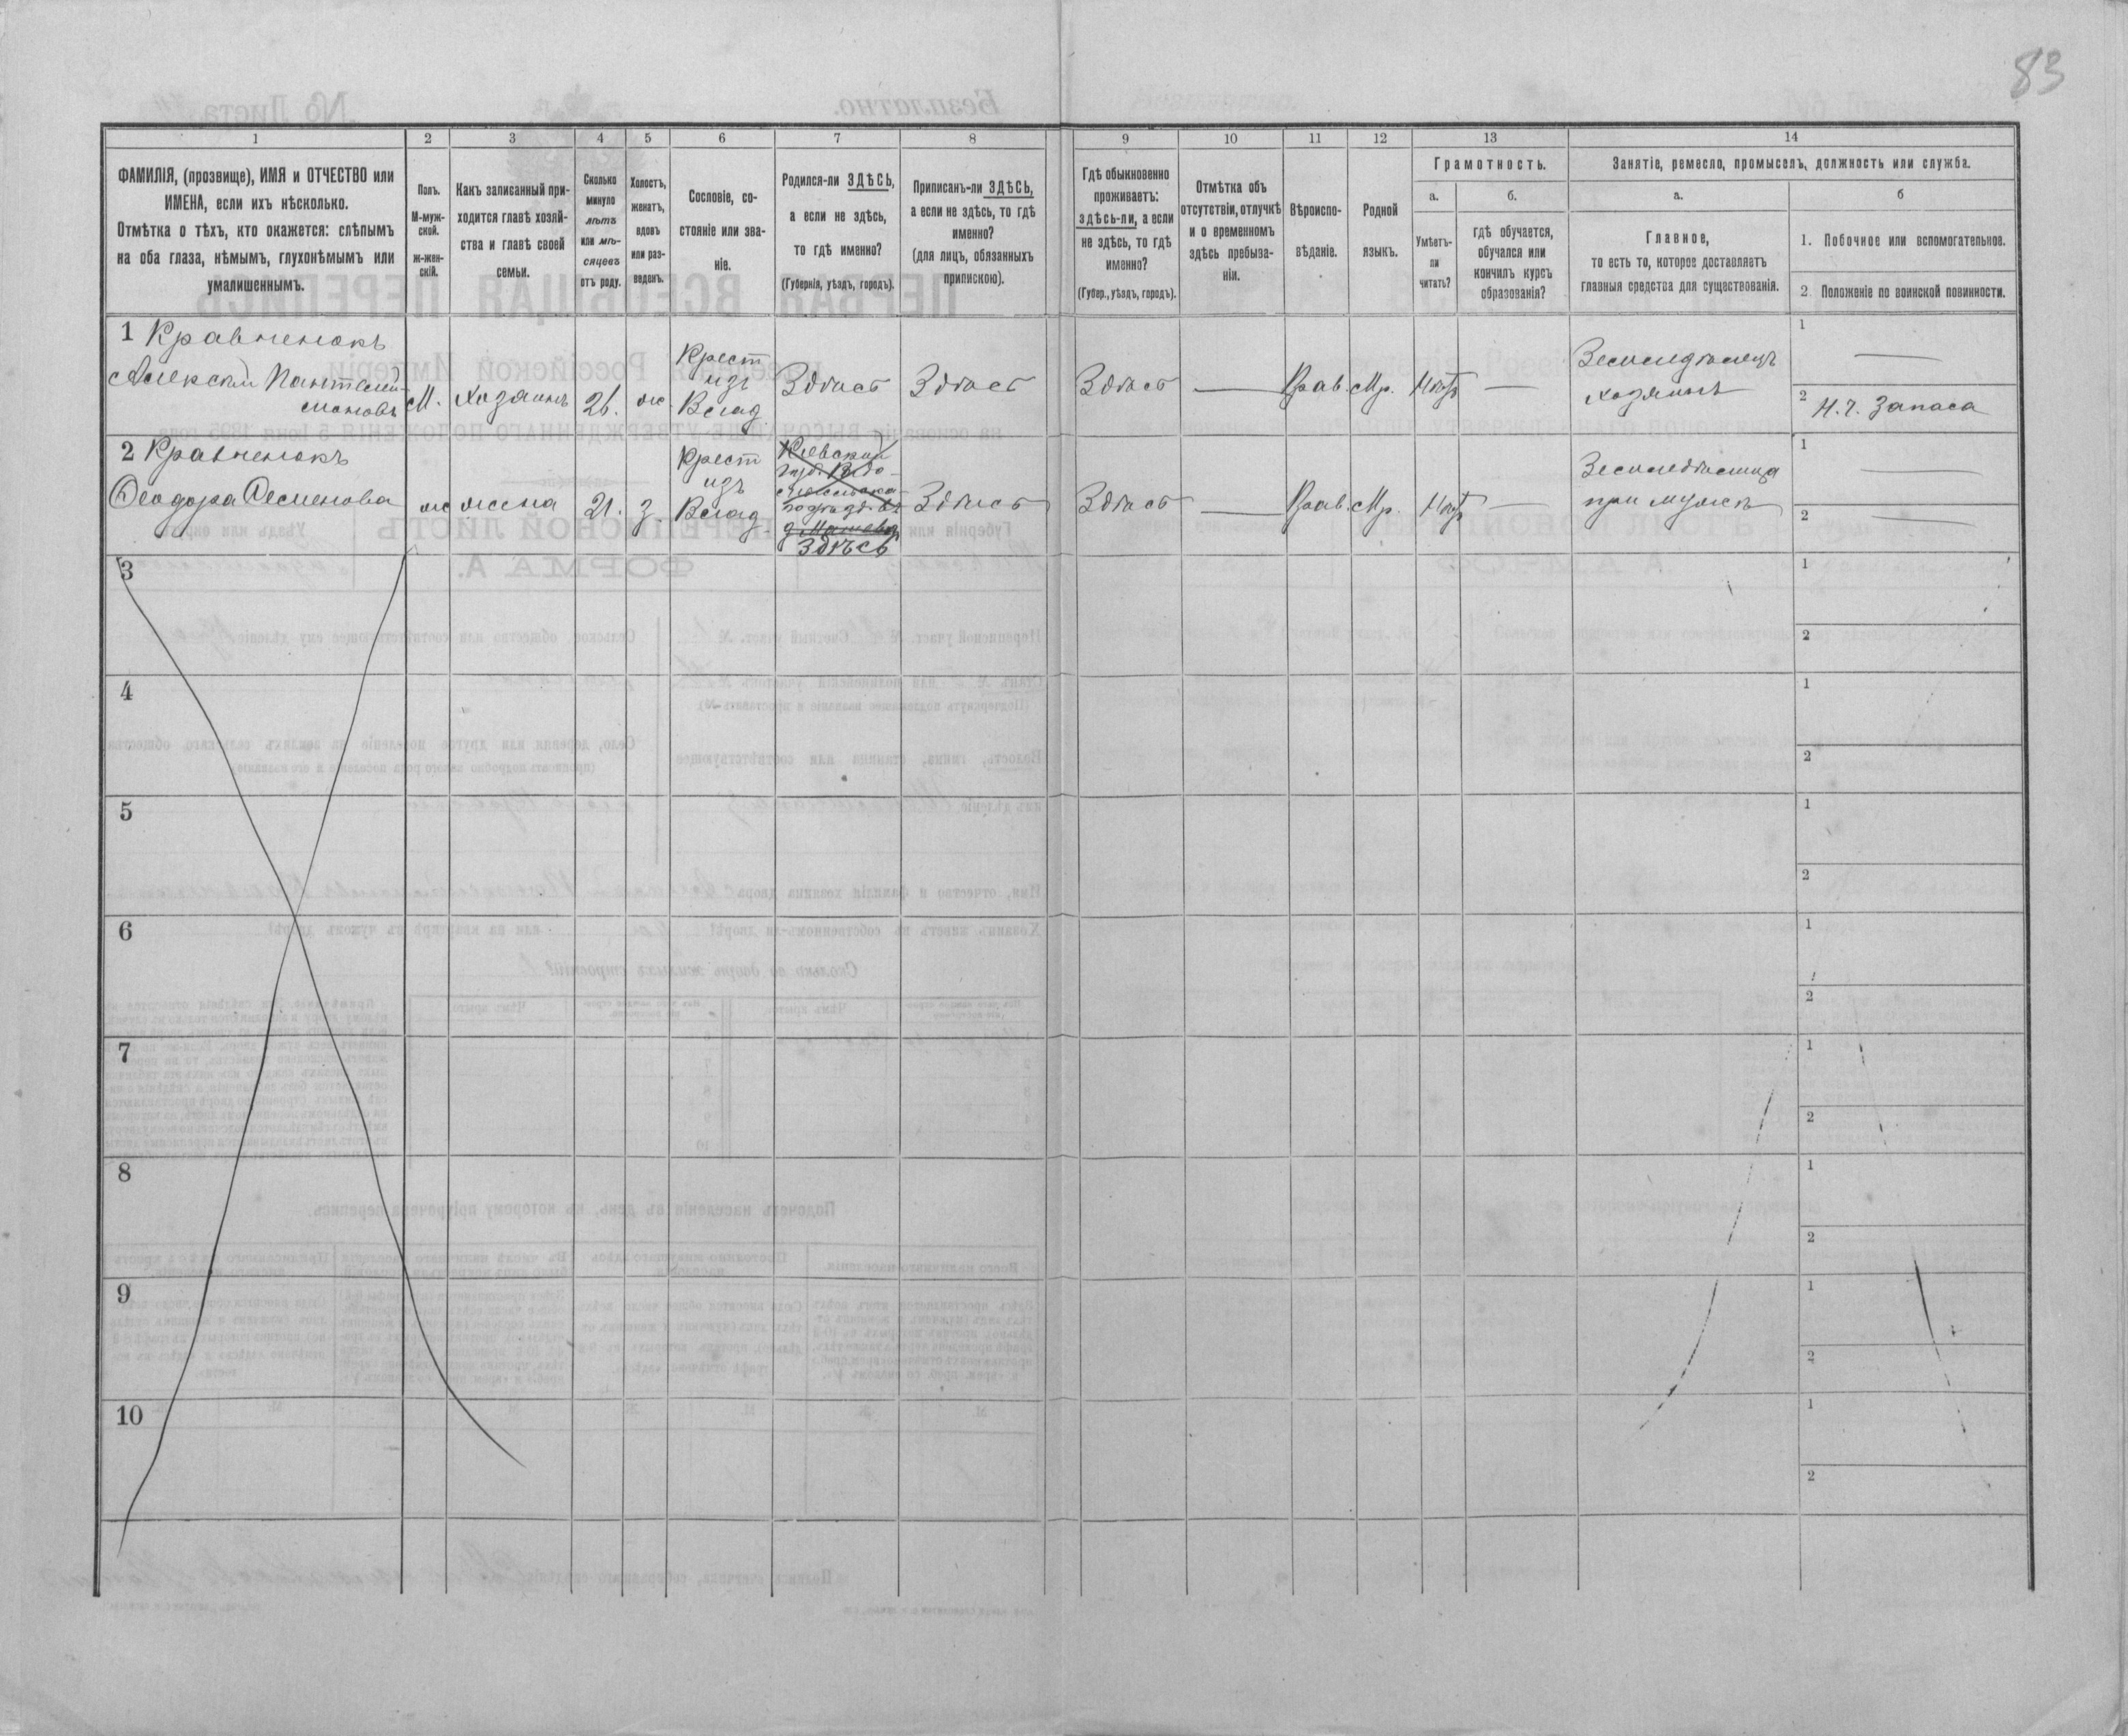 83
1
2
3
4
5
6
7
8
9
10
11
12
13
14
ФАМИЛІЯ, (прозвище), ИМЯ и ОТЧЕСТВО или
ИМЕНА, если ихъ нѣсколько.
Отмѣтка о тѣхъ, кто окажется: слѣпымъ
на оба глаза, нѣмымъ, глухонѣмымъ или
умалишеннымъ.
Полъ.
М-муж-
ской.
ж-жен-
скій.
Какъ записанный при-
ходится главѣ хозяй-
ства и главѣ своей
семьи.
Сколько
минуло
лѣтъ
или мѣ-
сяцевъ
отъ роду.
Холостъ,
женатъ,
вдовъ
или раз-
веденъ.
Сословіе, со-
стояніе или зва-
ніе.
Родился-ли ЗДѢСЬ,
а если не здѣсь,
то гдѣ именно?
(Губернія, уѣздъ, городъ).
Приписанъ-ли ЗДѢСЬ,
а если не здѣсь, то гдѣ
именно?
(для лицъ, обязанныхъ
припискою).
Гдѣ обыкновенно
проживаетъ:
здѣсь-ли, а если
не здѣсь, то гдѣ
именно?
(Губер., уѣздъ, городъ).
Отмѣтка объ
отсутствіи, отлучкѣ
и о временномъ
здѣсь пребыва-
ніи.
Вѣроиспо-
вѣданіе.
Родной
языкъ.
Грамотность.
а.
Умѣетъ-
ли
читать?
б.
гдѣ обучается,
обучался или
кончилъ курсъ
образованія?
Занятіе, ремесло, промыселъ, должность или служба.
а.
Главное,
то есть то, которое доставляетъ
главныя средства для существованія.
б
1. Побочное или вспомогательное.
2 Положеніе по воинской повинности.
1 Кравченюкъ
Алексѣй Пантелей-
моновъ
М.
хозяинъ
26.
ж.
Крест
изъ
Влад.
Здѣсь
Здѣсь
Здѣсь
—
Прав.
Мр.
Нѣтъ
—
Земледѣлецъ
хозяинъ
1 —
2 Н. ч. Запаса
2 Кравченюкъ
Ѳеодора Семенова
ж
жена
21.
з.
Крест
изъ
Влад.
Кіевской
губ.
Здѣсь
Здѣсь
Здѣсь
—
Прав.
Мр.
Нѣтъ
—
Земледѣлица
при мужѣ
1 —
2 —
3
1
2
4
1
2
5
1
2
6
1
2
7
1
2
8
1
2
9
1
2
10
1
2